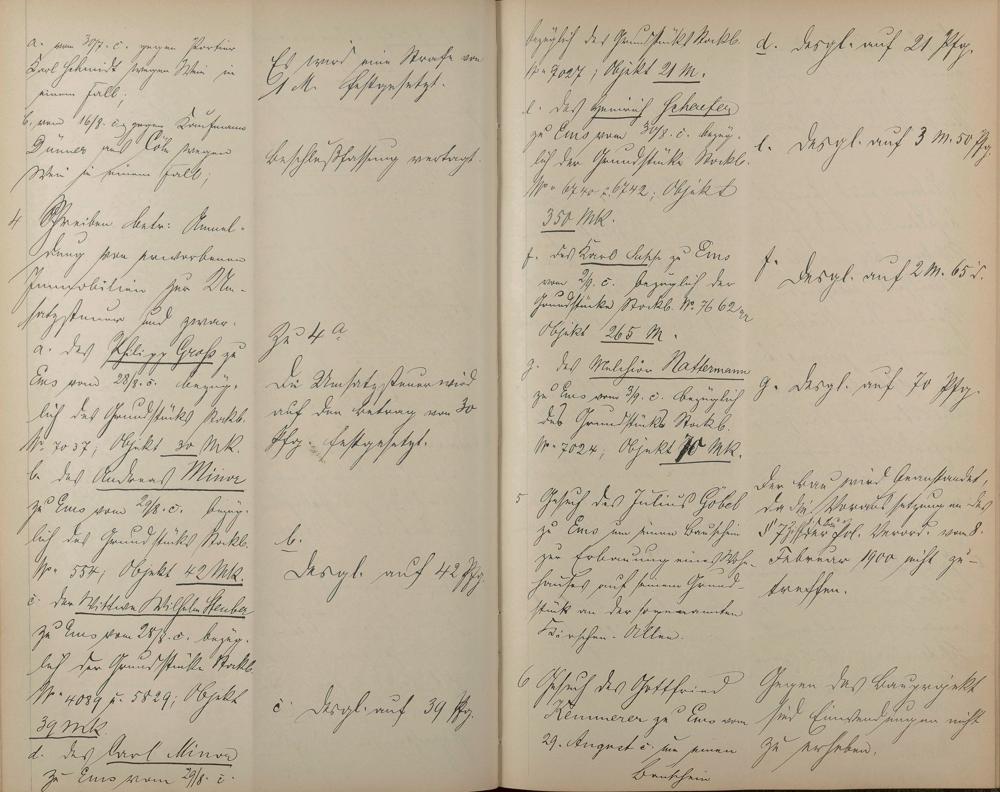 a. vom 30/7. c. gegen Portier
Karl Schmidt wegen Wein in
einem Fall;
b, vom 16/8. c. gegen Kaufmann
Dünner aus Cöln wegen
Wein in einem Fall;
4 Schreiben betr: Anmel-
dung von erworbenen
Immobilien zur Um-
satzsteuer und zwar.
a. des Philipp Groß zu
Ems vom 28/8. c. bezüg-
lich des Grundstücks Stockb.
No. 7037; Objekt 30 Mk.
b. des Andreas Minor
zu Ems vom 28/8. c. bezüg-
lich des Grundstücks Stockb.
No. 554; Objekt 42 Mk.
c. der Wittwe Wilhelm
zu Ems vom 28/8. c. bezüg-
lich der Grundstücke Stockb.
No. 4089 u. 5829; Objekt
39 Mk.
d. des Carl Minor
zu Ems vom 29/8. c.
Es wird eine Strafe von
1 M. festgesetzt.
Beschlußfassung vertagt.
Zu 4 a
Die Umsatzsteuer wird
auf den Betrag von 30
Pfg. festgesetzt.
b.
Desgl. auf 42 Pfg.
c. Desgl. auf 39 Pfg.
bezüglich des Grundstücks Stockb.
No. 7027; Objekt 21 M.
e. des Heinrich Schaefer
zu Ems vom 30/8. c. bezüg-
lich der Grundstücke Stockb.
No. 6740 u. 6742; Objekt
350 Mk.
f. des Karl zu Ems
vom 2/9. c. bezüglich der
Grundstücke Stockb. No. 7662
Objekt 265 M.
g. des Melchior Nattermann
zu Ems vom 3/9. c. bezüglich
des Grundstücks Stockb.
No. 7024; Objekt 70 Mk.
5 Gesuch des Julius Göbel
zu Ems um einen Bauschein
zur Erbauung eines Wohn-
hauses auf seinem Grund-
stück an der sogenannten
Kirschen-Allee.
6 Gesuch des Gottfried
Kemmerer zu Ems vom
29. August c. um einen
Bauschein
d. Desgl. auf 21 Pfg.
e. Desgl. auf 3 M. 50 Pfg.
f.
Desgl. auf 2 M. 65 d.
g. Desgl. auf 70 Pfg.
Der Bau wird beanstandet,
da die Voraussetzung des
§ der Pol. Verord. vom 8.
Februar 1900 nicht zu-
treffen.
Gegen das Bauprojekt
sind Einwendungen nicht
zu erheben.